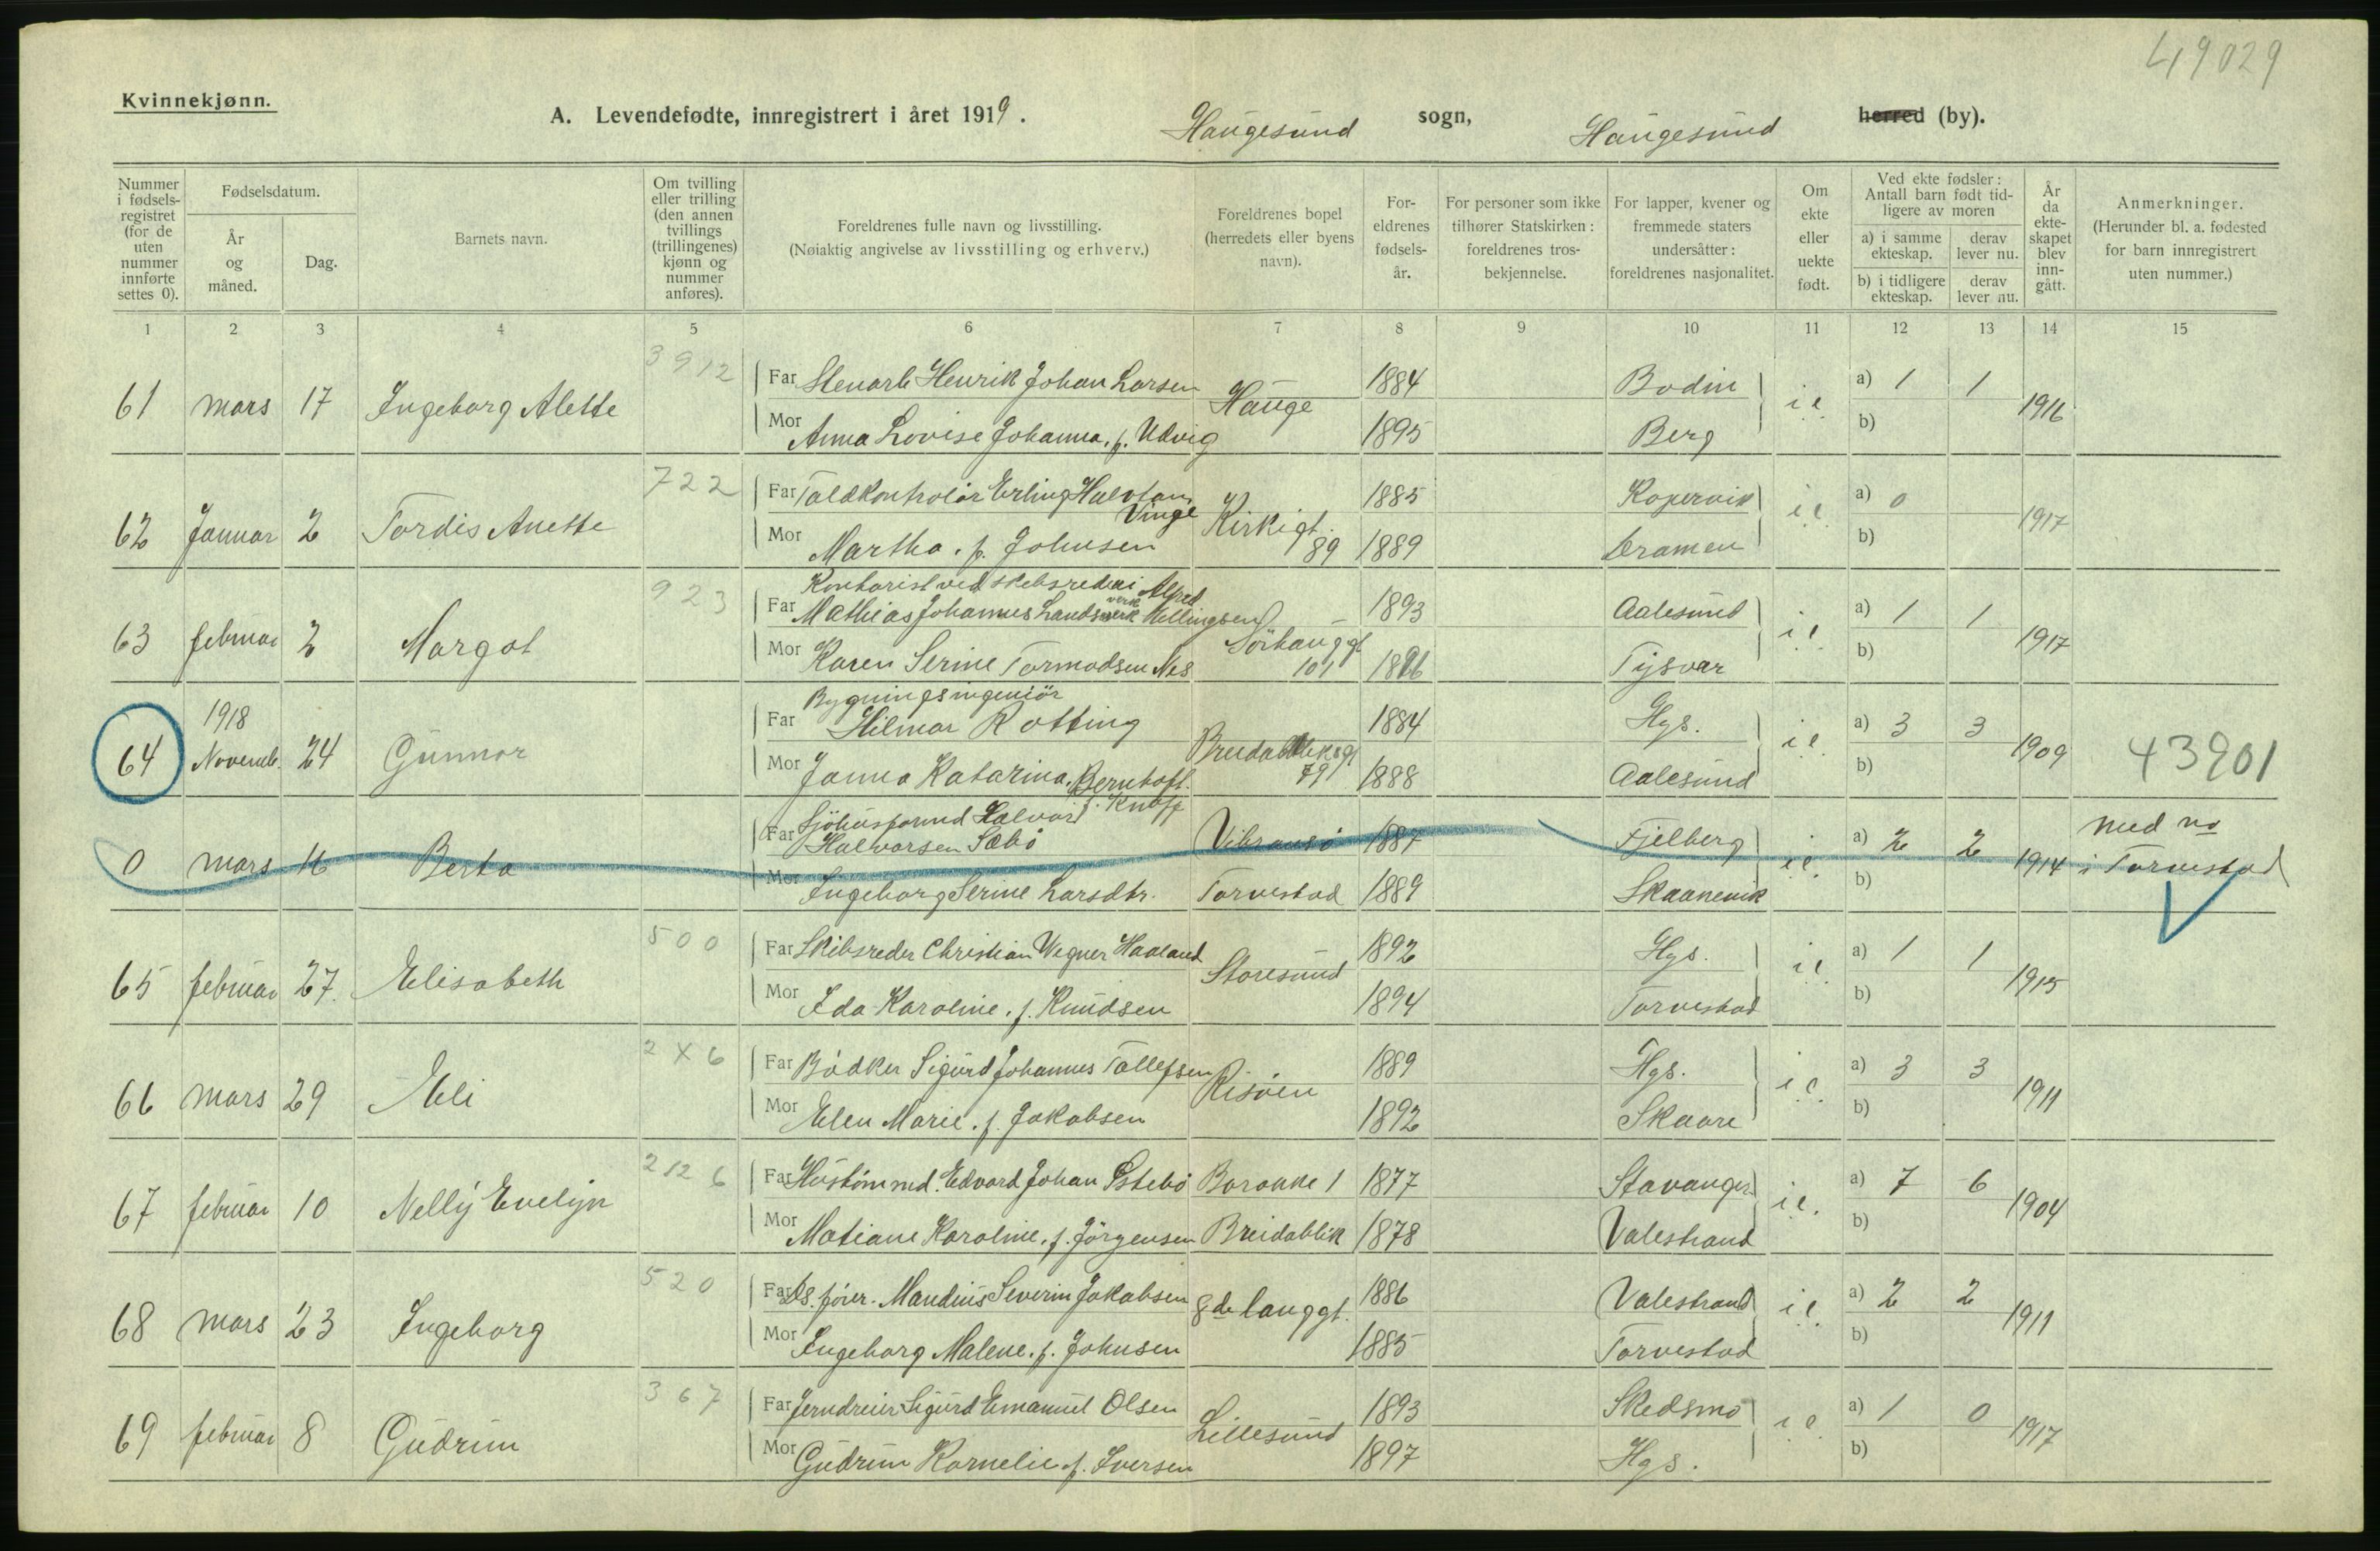 49029
Kvinnekjønn.
A. Levendefødte, innregistrert i året 1919. Haugesund sogn, Haugesund herred (by).
Nummer i fødsels-registret (for de uten nummer innførte settes 0).
Fødselsdatum.
År og måned.
Dag.
Barnets navn.
Om tvilling eller trilling (den annen tvillings (trillingenes) kjønn og nummer anføres).
Foreldrenes fulle navn og livsstilling. (Nøiaktig angivelse av livsstilling og erhverv.)
Foreldrenes bopel (herredets eller byens navn).
For-eldrenes fødsels-år.
For personer som ikke tilhører Statskirken: foreldrenes tros-bekjennelse.
For lapper, kvener og fremmede staters undersåtter: foreldrenes nasjonalitet.
Om ekte eller uekte født.
Ved ekte fødsler: Antall barn født tid-ligere av moren
a) i samme ekteskap.
derav lever nu.
b) i tidligere ekteskap.
derav lever nu.
År da ekte-skapet blev inn-gått.
Anmerkninger. (Herunder bl. a. fødested for barn innregistrert uten nummer.)
1 2 3 4 5 6 7 8 9 10 11 12 13 14 15
3912
Far Stenarb Henrik Johan Larsen 1884 Bodin a) 1 1
61 mars 17 Ingeborg Alette Hauge i.e. 1916
Mor Anna Lovise Johanna, f. Udvig 1895 Berg b)
722
Far Toldkontrolør Erling Halvtan Vinge 1885 Kopervik a) 0
62 Januar 2 Tordis Anette Kirkigt. 89 i.e. 1917
Mor Martha. f. Johnsen 1889 Dramen b)
923
Kontorist ved skibsrederi Alfred
Far Mathias Johannes Landsverk verk Hellingsen 1893 Aalesund a) 1 1
63 februar 2 Margot Sörhauggt 101 i.e. 1917
Mor Karen Serine Tormodsen Nes 1896 Tysvær b)
Bygningsingeniör
1918
Far Hilmar Rotting 1884 Hgs. a) 3 3
64 Novemb. 24 Gunnor Breidabliksgt 79 i.e. 1909 43901
Mor Janna Katarina, Bernhoft. f. Knoff 1888 Aalesund b)
Sjöhusformd Halvor
Far Halvorsen Sæbö Vibransö 1887 Fjelberg a) 2 2 med no
0 mars 16 Berta i.e. 1914 i Torvestad
Mor Ingeborg Serine Larsdtr. Torvestad 1889 Skaanevik b)
500
Far Skibsreder Christian Wegner Haaland 1892 Hgs. a) 1 1
65 februar 27. Elisabeth Storesund i.e. 1915
Mor Ida Karoline. f. Knudsen 1894 Torvestad b)
2 X 6
Far Bödker Sigurd Johannes Tollefsen 1889 Hgs. a) 3 3
66 mars 29 Eli Risöen i.e. 1911
Mor Elen Marie. f. Jakobsen 1892 Skaare b)
2126
Far Hustömmd. Edvard Johan Østebö Barakke 1 1877 Stavanger a) 7 6
67 februar 10 Nelly Evelyn i.e. 1904
Mor Matiane Karoline. f. Jörgensen Breidablik 1878 Valestrand b)
520
Far Ds. förer. Mandius Severin Jakobsen 1886 Valestrand a) 2 2
68 mars 23 Ingeborg 8de langgt. i.e. 1911
Mor Ingeborg Malene. f. Johnsen 1885 Torvestad b)
367
Far Jerndreier Sigurd Emanuel Olsen 1893 Skedsmo a) 1 0
69 februar 8 Gudrun Lillesund i.e. 1917
Mor Gudrun Kornelie f. Iversen 1897 Hgs. b)